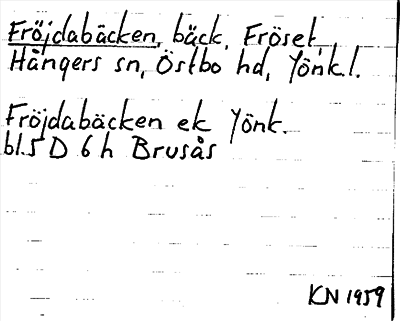 Fröjdabäcken, bäck, Fröset,
Hångers sn, Östbo hd, Jönk.l.
Fröjdabäcken ek Jönk.
bl.5 D 6h Brusås
KN 1959